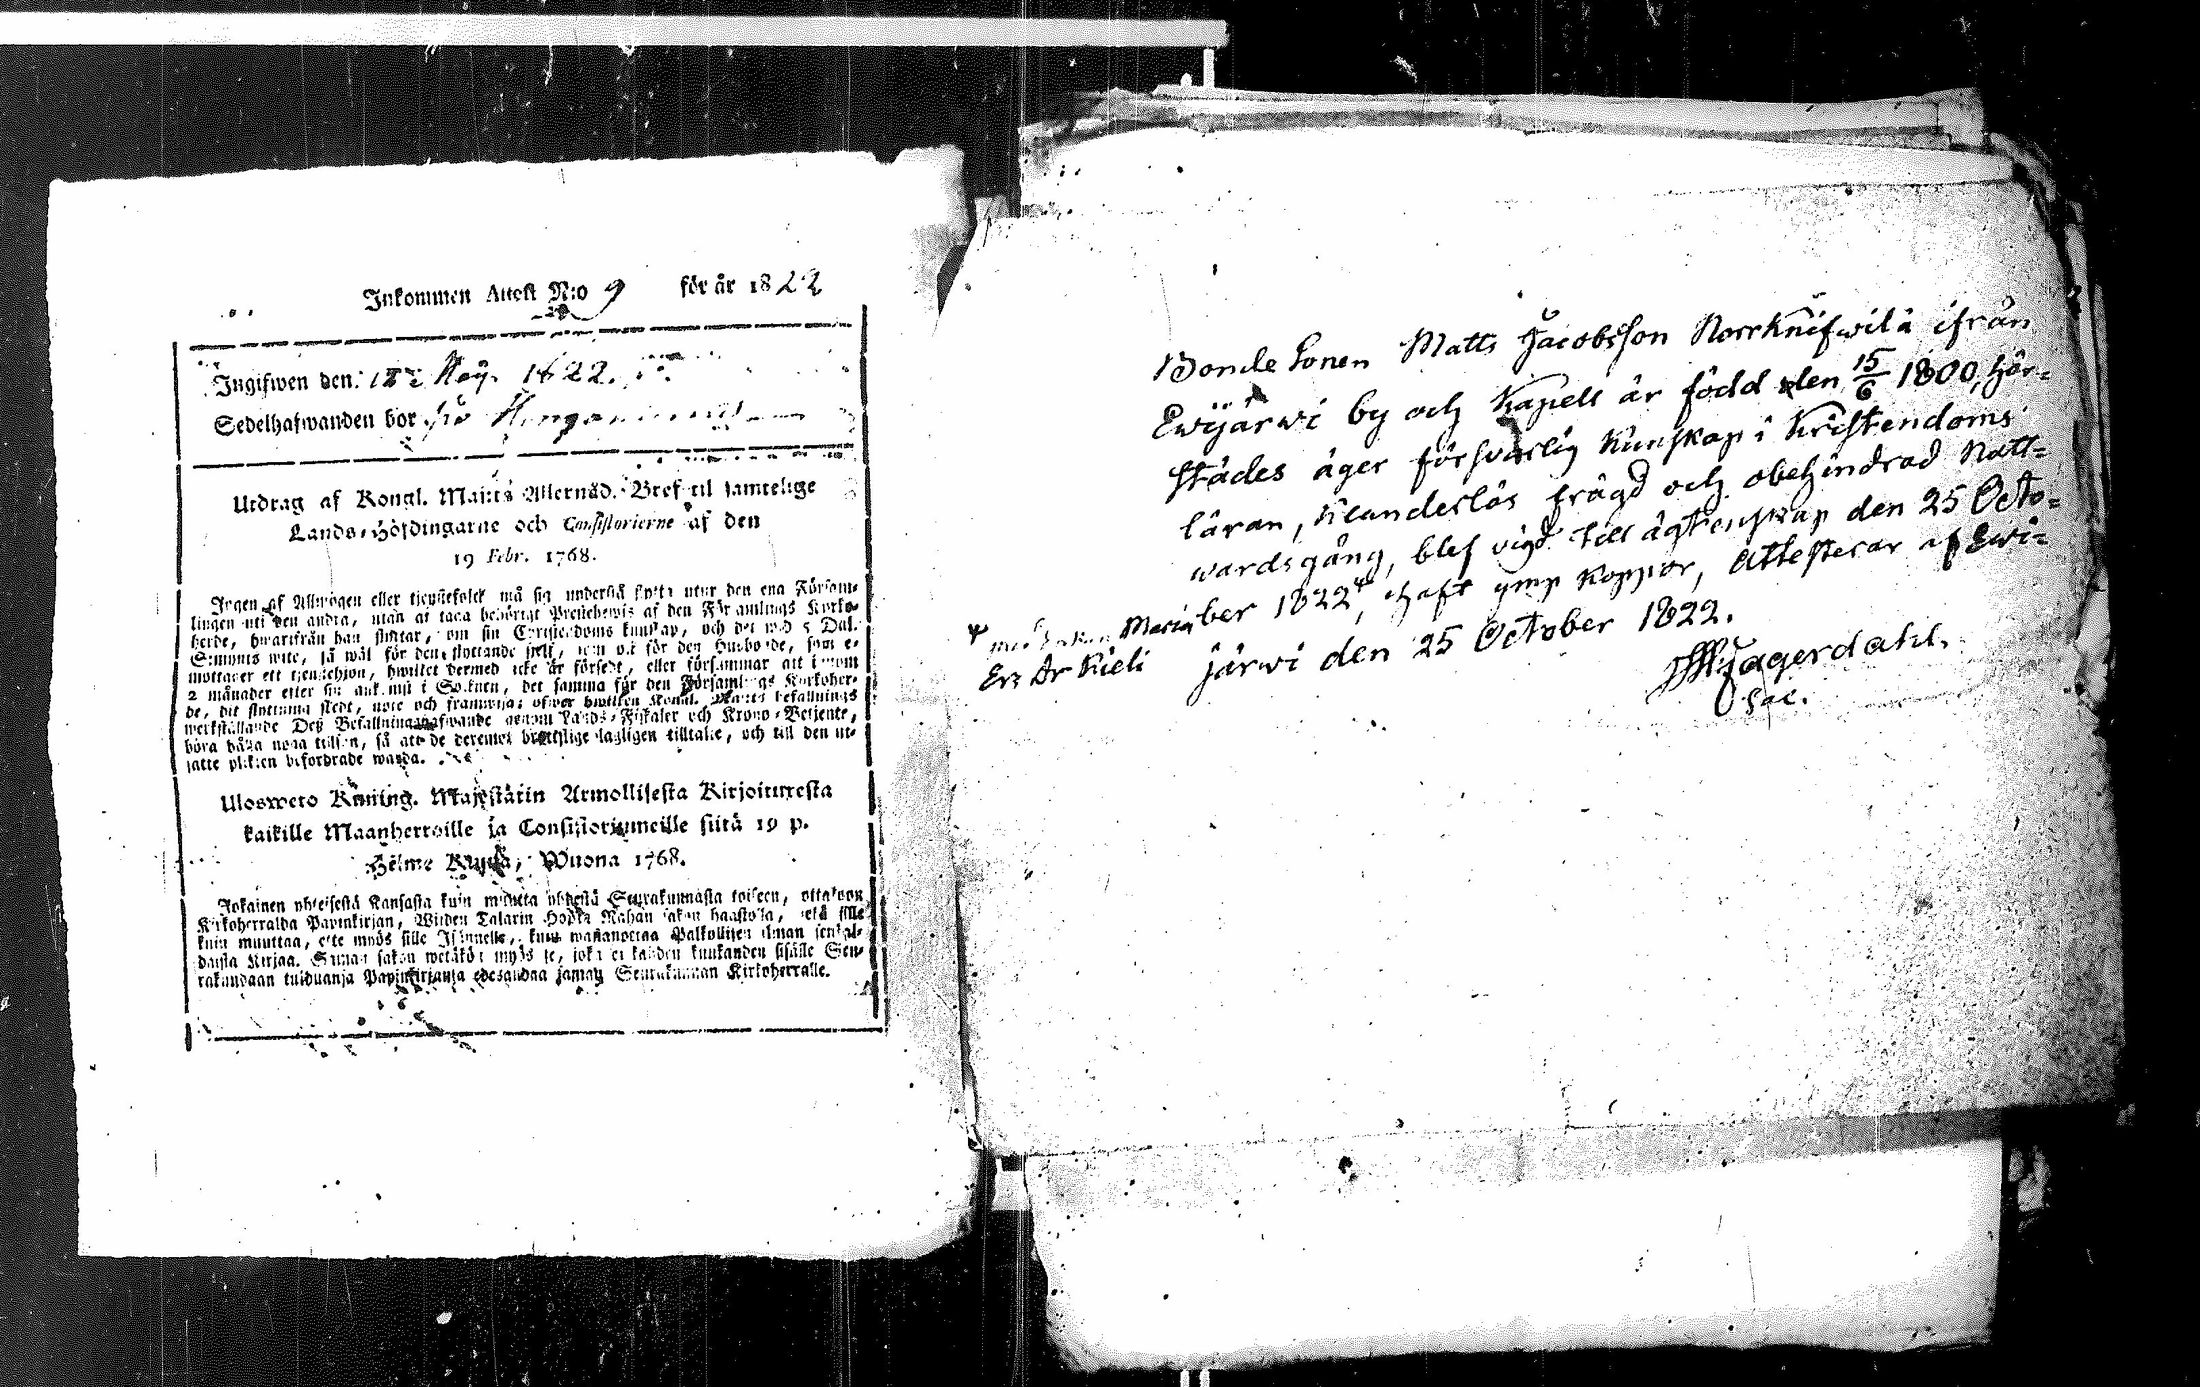 Inkommen Attest N:o 9 för år 1822
Ingifwen den 1822.
Sedelhafwanden bor
Utdrag af Kongl. Maj:ts Allernåd. Bref til samtelige
Lands-Höfdingarne och Consistorierne af den
19 Febr. 1768.
Ingen af Allmogen eller tjenstefolck må sig understå flytta utur den ena Försam-
lingen uti den andra, utan at taga behörigt Prestebewis af den Församlings Kyrko-
herde, hwarifrån han flyttar, om sin Christendoms kunskap, och det wid 5 Dal.
S:mynts wite, så wäl för den flyttande sielf, som ock för den Husbonde, som e-
mottager ett tjenstehjon, hwilket dermed icke är försedt, eller försummar att inom
2 månader efter sin ankomst i Socknen, det samma för den Församlings Kyrkoher-
de, dit flyttning skedt, upte och framwisa; öfwer hwilken Kongl. Maj:ts befallnings
werkställande Deß Befallningshafwande genom Lands-Fiskaler och Krono-Betjente,
böra hålla noga tillsyn, så att de deremot brottslige lagligen tilltalte, och till den ut-
satte plickten befordrade warda.
Ulosweto Kuning. Majestätin Armollisesta Kirjoituxesta
kaikille Maanherroille ja Consistoriumeille siitä 19 p.
Helme Kuusa, Wuona 1768.
Jokainen yhteisestä Kansasta kuin muutta yhdestä Seurakunnasta toiseen, ottakoon
Kirkoherralda Papinkirjan, Wijden Talarin Hopia Rahan sakon haastolla, sekä sille
kuin muuttaa, ette myös sille Isännelle, kuin wastanottaa Palkollisen ilman senkal-
daista Kirjaa. Saman sakon wetäkön myös se, joka ei kahden kuukauden sisälle Seu-
rakundaan tulduansa Papinkirjansa edesanna saman Seurakunnan Kirkoherralle.
Bonde Sonen Matts Jacobsson Norrknifwilä ifrån
Ewijärwi by och Kapell är född den 15/6 1800, här-
städes äger försvarlig Kunskap i Kristendoms
läran, Klanderlös frägd och obehindrad Natt-
wardsgång, blef vigd till äqtenskap den 25 Octo-
ber 1822, haft ymp Koppor, Attesterar af Ewi-
järwi den 25 October 1822.
Jagerdahl.
Sac.
Maria
Ers dr Kieli